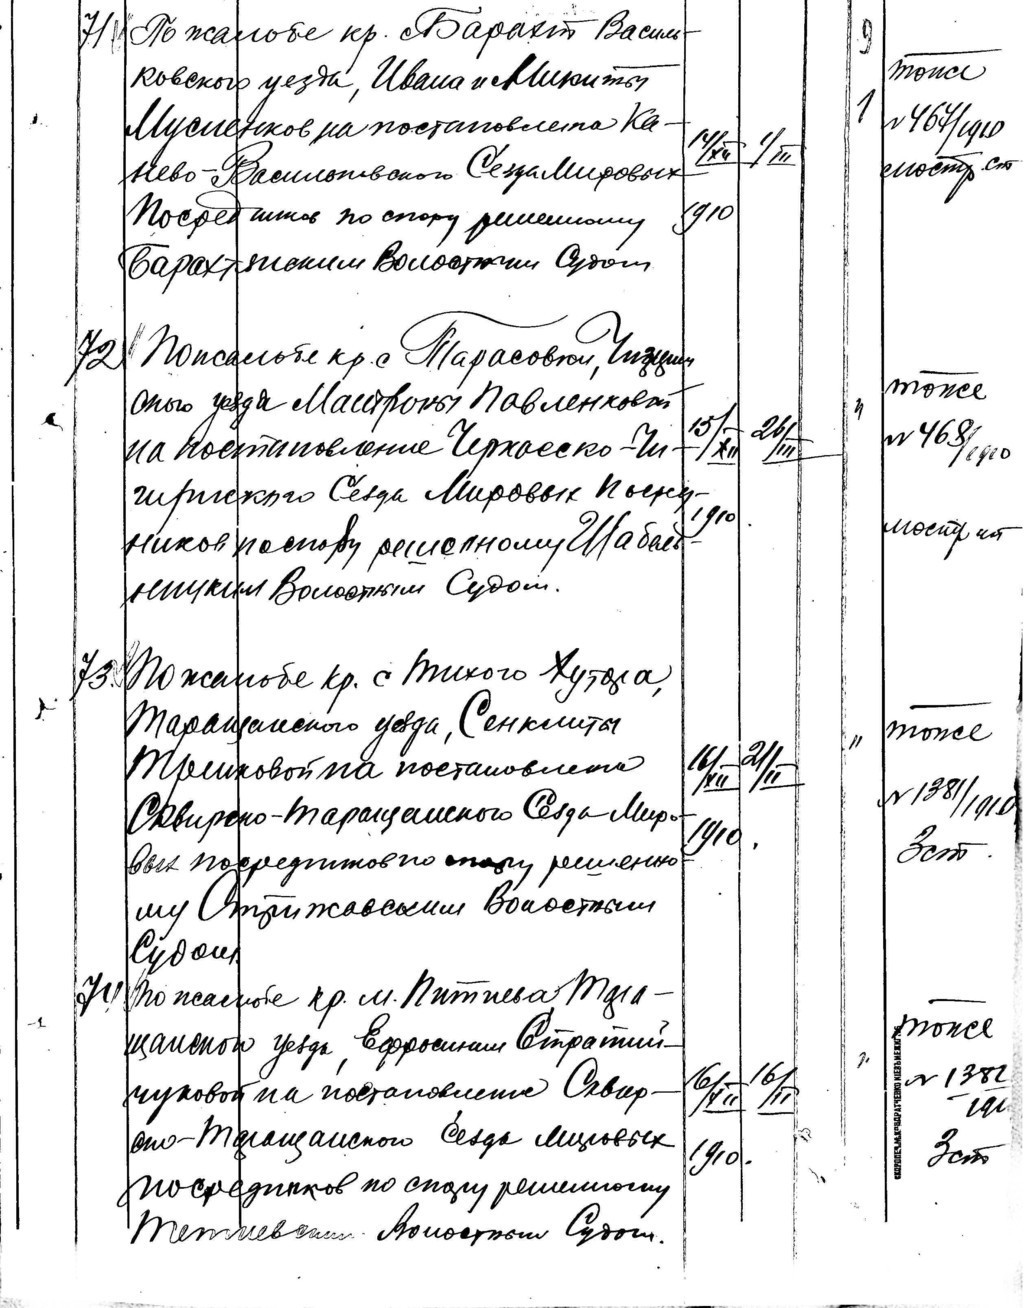 71 По жалобе кр. с Барахт Василь-
ковского уезда, Ивана и Микиты
Мусиенков на постановлена Ка-
нево-Васильковского Сезда Мировых
Посредников по спору решенному
Барахтянским Волостным Судом
14/XII 1910
1/III
9
1
тоже
№ 467/1910
72 По жалобе кр. с Тарасовки, Чигирин
ского уезда Матроны Павленковой
на постановление Черкасско-Чи-
гиринского Сезда Мировых Посред-
ников по спору решенному Шабель-
ницким Волостным Судом.
15/XII 1910.
26/III
"
тоже
№ 468/1910
73. По жалобе кр. с Тихого Хутора,
Таращанского уезда, Сенклиты
на постановлена
Сквирско-Таращанского Сезда Миро-
вых посредников по спору решенно-
му Стрижавским Волостным
Судом
16/XII 1910.
21/II
"
тоже
№ 1381/1910
3 ст.
74 По жалобе кр. м. Пятиева Тара-
щанского уезда, Ефросинии Стратий-
чуковой на постановление Сквир-
ско-Таращанского Сезда мировых
посредников по спору решенному
Тетиевским Волостным Судом.
16/XII 1910.
16/II
"
тоже
№ 1382
191
3 ст